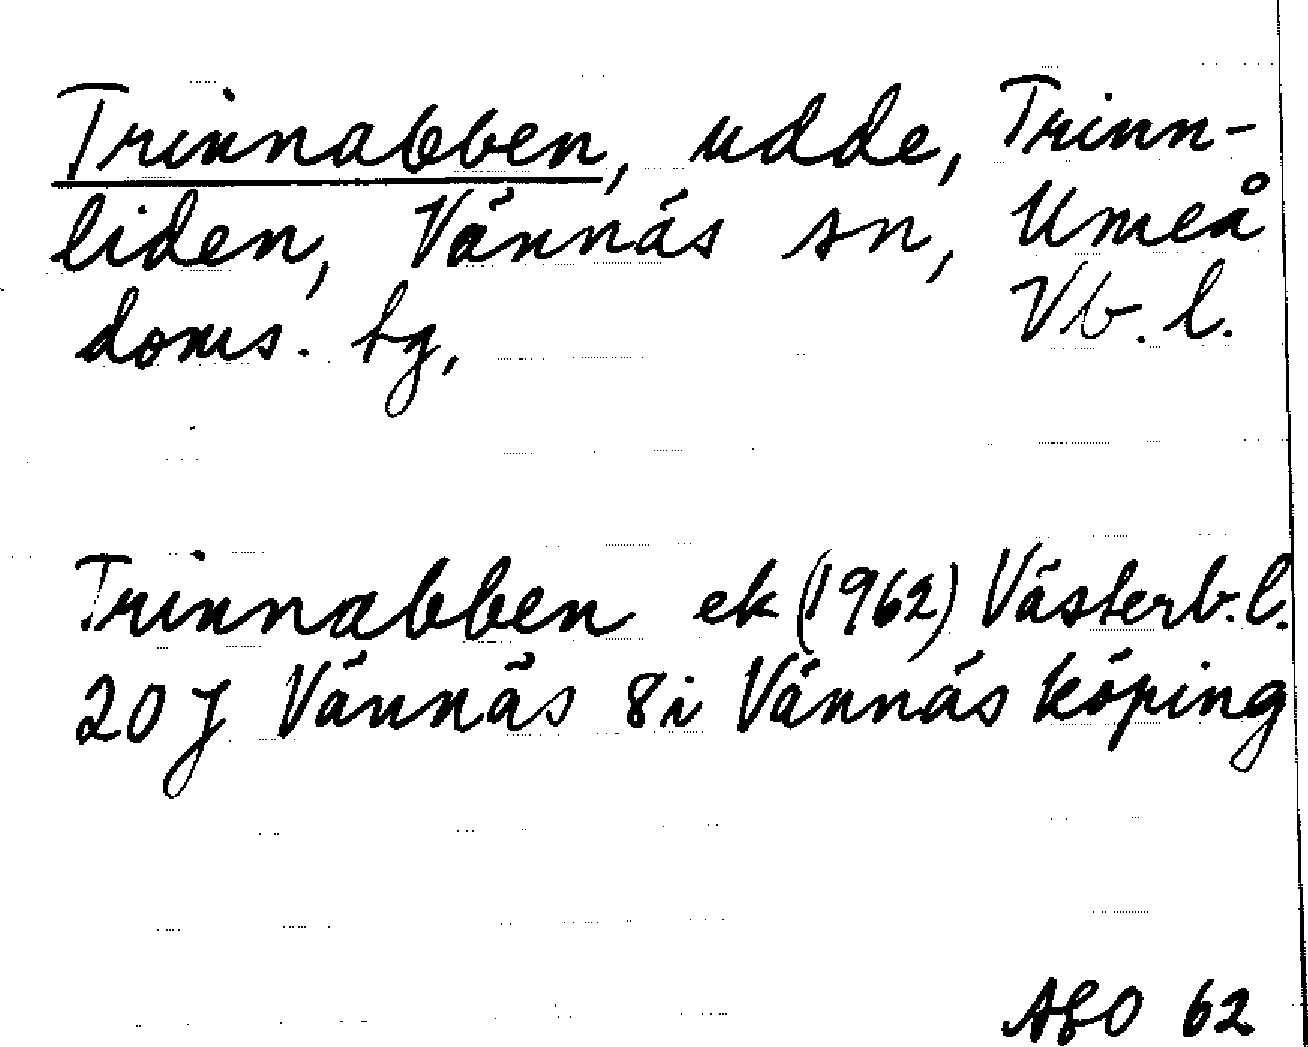 Trinnabben, udde, Trinn-
liden, Vännäs sn, Umeå
doms. tg, Vb. l.
Trinnabben ek (1962) Västerb. l.
20 J Vännäs 8i Vännäs köping
ABO 62